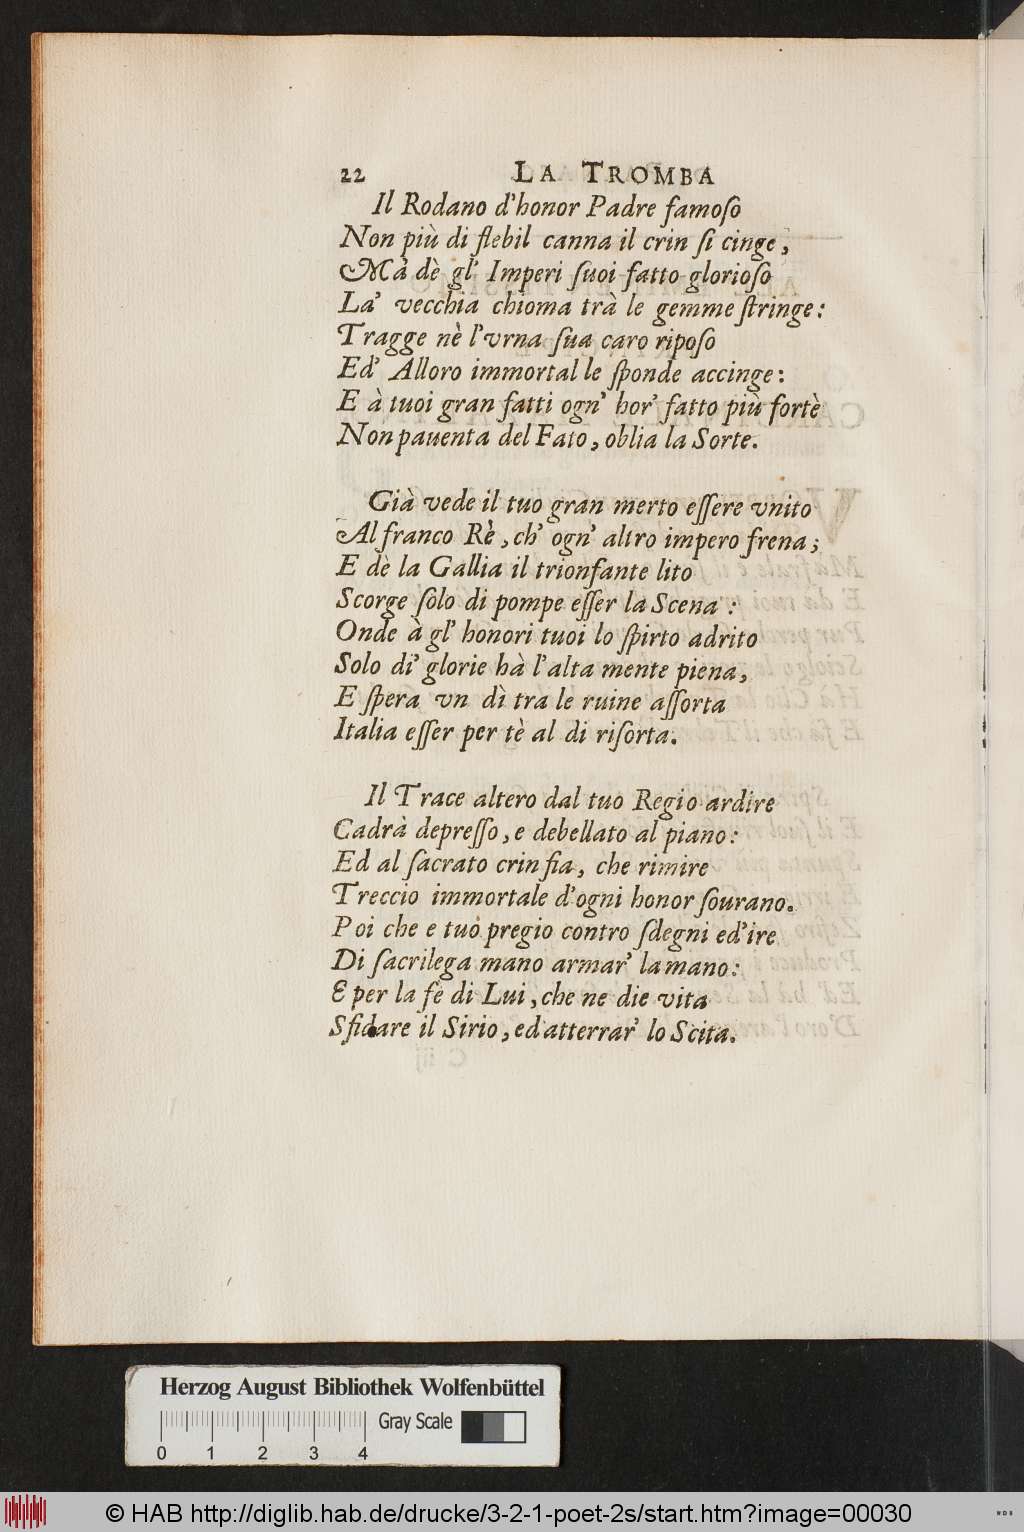 22 LA TROMBA
Il Rodano d'honor Padre famoſo
Non più di flebil canna il crin ſi cinge,
Mà dè gl' Imperi ſuoi fatto glorioſo
La' vecchia chioma trà le gemme ſtringe:
Tragge nè l'vrna ſua caro ripoſo
Ed' Alloro immortal le ſponde accinge:
E à tuoi gran fatti ogn' hor' fatto più fortè
Non pauenta del Fato, oblia la Sorte.
Già vede il tuo gran merto eſſere vnito
Al franco Rè, ch' ogn' altro impero frena;
E dè la Gallia il trionfante lito
Scorge ſolo di pompe eſſer la Scena :
Onde à gl' honori tuoi lo ſpirto adrito
Solo di' glorie hà l'alta mente piena,
E ſpera vn dì tra le ruine aſſorta
Italia eſſer per tè al di riſorta.
Il Trace altero dal tuo Regio ardire
Cadrà depreſſo, e debellato al piano:
Ed al ſacrato crin fia, che rimire
Treccio immortale d'ogni honor ſourano.
Poi che e tuo pregio contro ſdegni ed'ire
Di ſacrilega mano armar' la mano:
E per la fè di Lui, che ne die vita
Sfidare il Sirio, ed atterrar' lo Scita.
Herzog August Bibliothek Wolfenbüttel
Gray Scale
0 1 2 3 4
© HAB http://diglib.hab.de/drucke/3-2-1-poet-2s/start.htm?image=00030